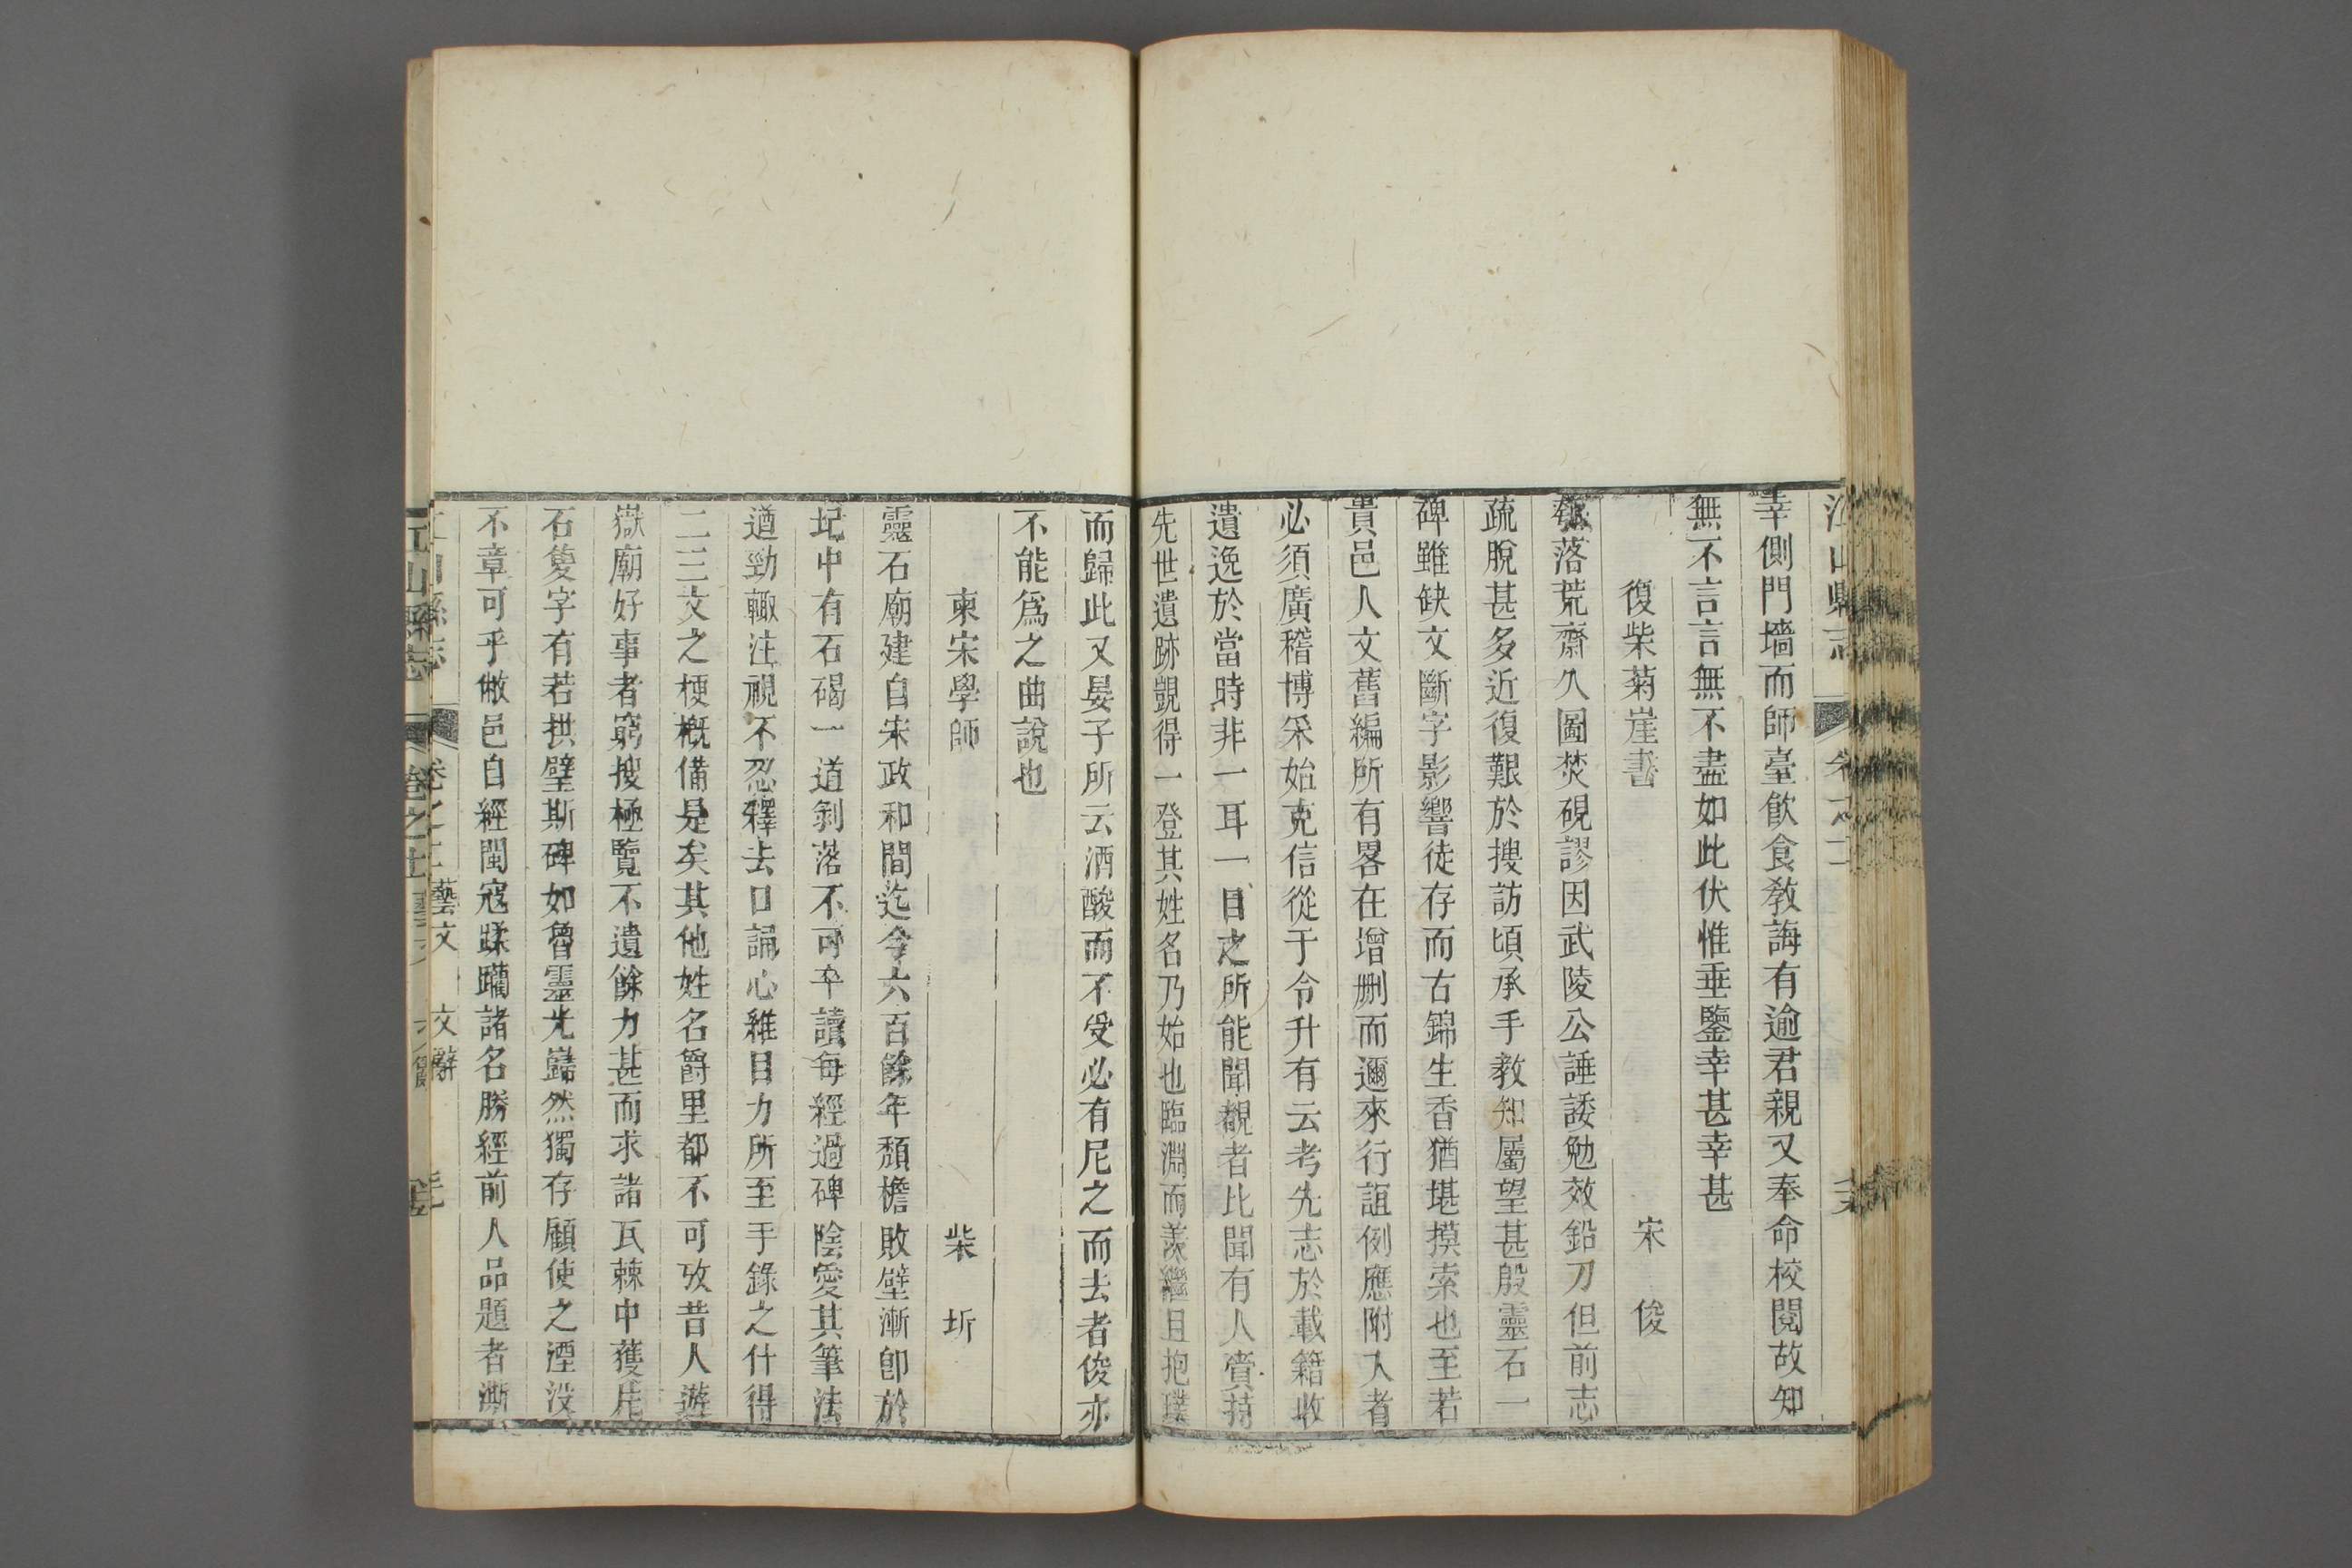 江山縣志
幸側門墻而師臺飲食敎誨有逾君親又奉命校閱故知
無不言言無不盡如此伏惟垂鑒幸甚幸甚
復柴菊崖書 宋 俊
落荒齋久圖焚硯謬因武陵公諈諉勉效鉛刀但前志
疏脫甚多近復艱於搜訪頃承手敎知屬望甚殷靈石一
碑雖缺文斷字影響徒存而古錦生香猶堪摸索也至若
貴邑人文舊編所有畧在增刪而邇來行誼例應附入者
必須廣稽博采始克信從于令升有云考先志於載籍收
遺逸於當時非一耳一目之所能聞覩者比聞有人賫持
先世遺跡覬得一登其姓名乃始也臨淵而羨繼且抱璞
而歸此又晏子所云酒酸而不受必有尼之而去者俊亦
不能爲之曲說也
柬宋學師 柴 圻
靈石廟建自宋政和間迄今六百餘年頹檐敗壁漸卽於
圮中有石碣一道剝落不可卒讀每經過碑陰愛其筆法
遒勁輙注視不忍釋去口誦心維目力所至手錄之什得
二三文之梗概備是矣其他姓名爵里都不可攷昔人遊
嶽廟好事者窮搜極覽不遺餘力甚而求諸瓦棘中獲片
石隻字有若拱璧斯碑如魯靈光巋然獨存顧使之湮没
不章可乎敝邑自經閩寇蹂躪諸名勝經前人品題者澌
江山縣志 卷之十二 藝文 文辭
江山縣志